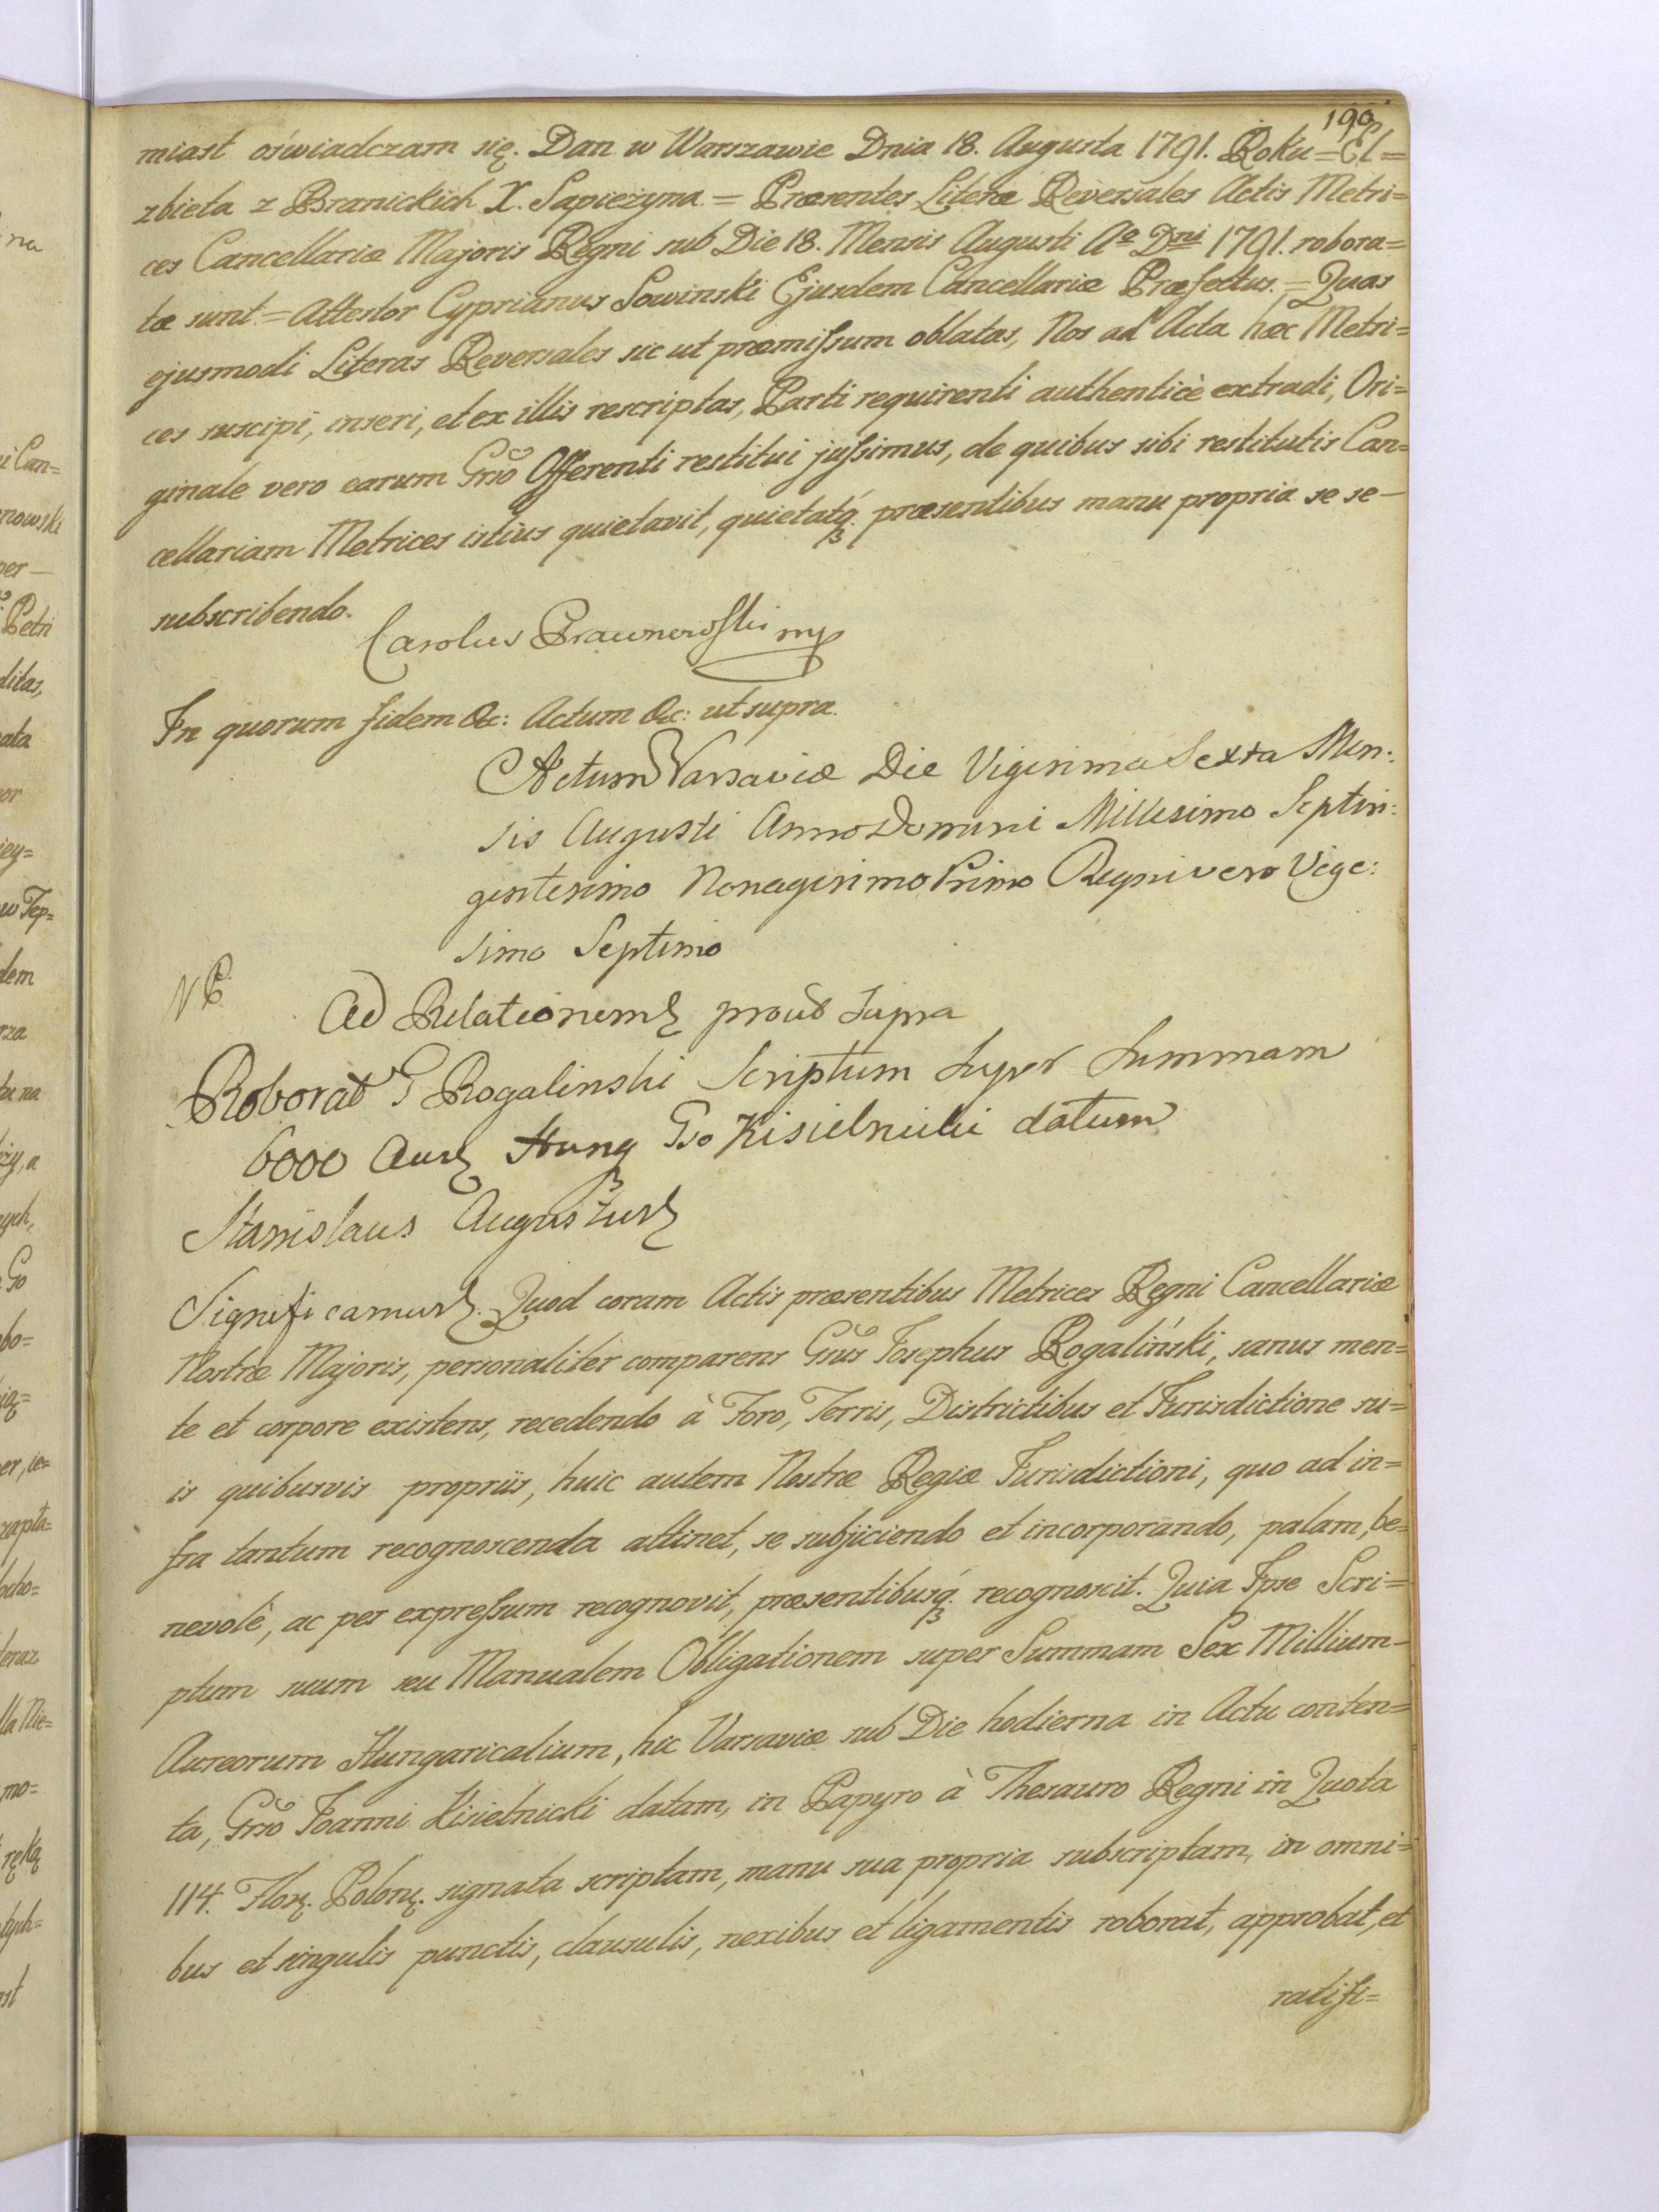 190
miast oświadczam się. Dan w Warszawie Dnia 18. Augusta 1791. Roku = El=
zbieta z Branickich X. Sapieżyna. = Præsentes Literæ Reversales Actis Metri=
ces Cancellariæ Majoris Regni sub Die 18. Mensis Augusti Aº Dni 1791. robora=
tæ sunt. = Attestor Cyprianus Sowinski Ejusdem Cancellariæ Præfectus. = Quas
ejusmodi Literas Reversales sic ut præmissum oblatas, Nos ad Acta hæc Metri=
ces suscipi, inseri, et ex illis rescriptas, Parti requirenti authenticè extradi, Ori=
ginale vero earum Grso Offerenti restitui jussimus, de quibus sibi restitutis Can=
cellariam Metrices istius quietavit, quietatq. præsentibus manu propria se se—
subscribendo.
Carolus Prawnowski mp
In quorum fidem &c: Actum &c: ut supra.
Actum Varsaviæ Die Vigesima Sexta Men:
sis Augusti Anno Domini Millesimo Septin:
gentesimo Nonagesimo Primo Regni vero Vige:
simo Septimo
Ad Relationem prout supra
Roborat G Rogalinski Scriptum super Summam
6000 Aur Hung Gso Kisielnicki datum
Stanislaus Augustus
Significamus. Quod coram Actis præsentibus Metrices Regni Cancellariæ
Nostræ Majoris, personaliter comparens Gsus Josephus Rogaliński, sanus men=
te et corpore existens, recedendo à Foro, Terris, Districtibus et Jurisdictione su=
is quibusvis propriis, huic autem Nostræ Regiæ Jurisdictioni, quo ad in=
fra tantum recognoscenda attinet, se subjiciendo et incorporando, palam, be=
nevolè, ac per expressum recognovit, præsentibusq. recognoscit. Quia Ipse Scri=
ptum suum seu Manualem Obligationem super Summam Sex Millium—
Aureorum Hungaricalium, hic Varsaviæ sub Die hodierna in Actu conten=
ta, Grso Joanni Kisielnicki datam, in Papyro à Thesauro Regni in Quota
114. Flor. Polon. signata scriptam, manu sua propria subscriptam, in omni=
bus et singulis punctis, clausulis, nexibus et ligamentis roborat, approbat, et
ratifi=